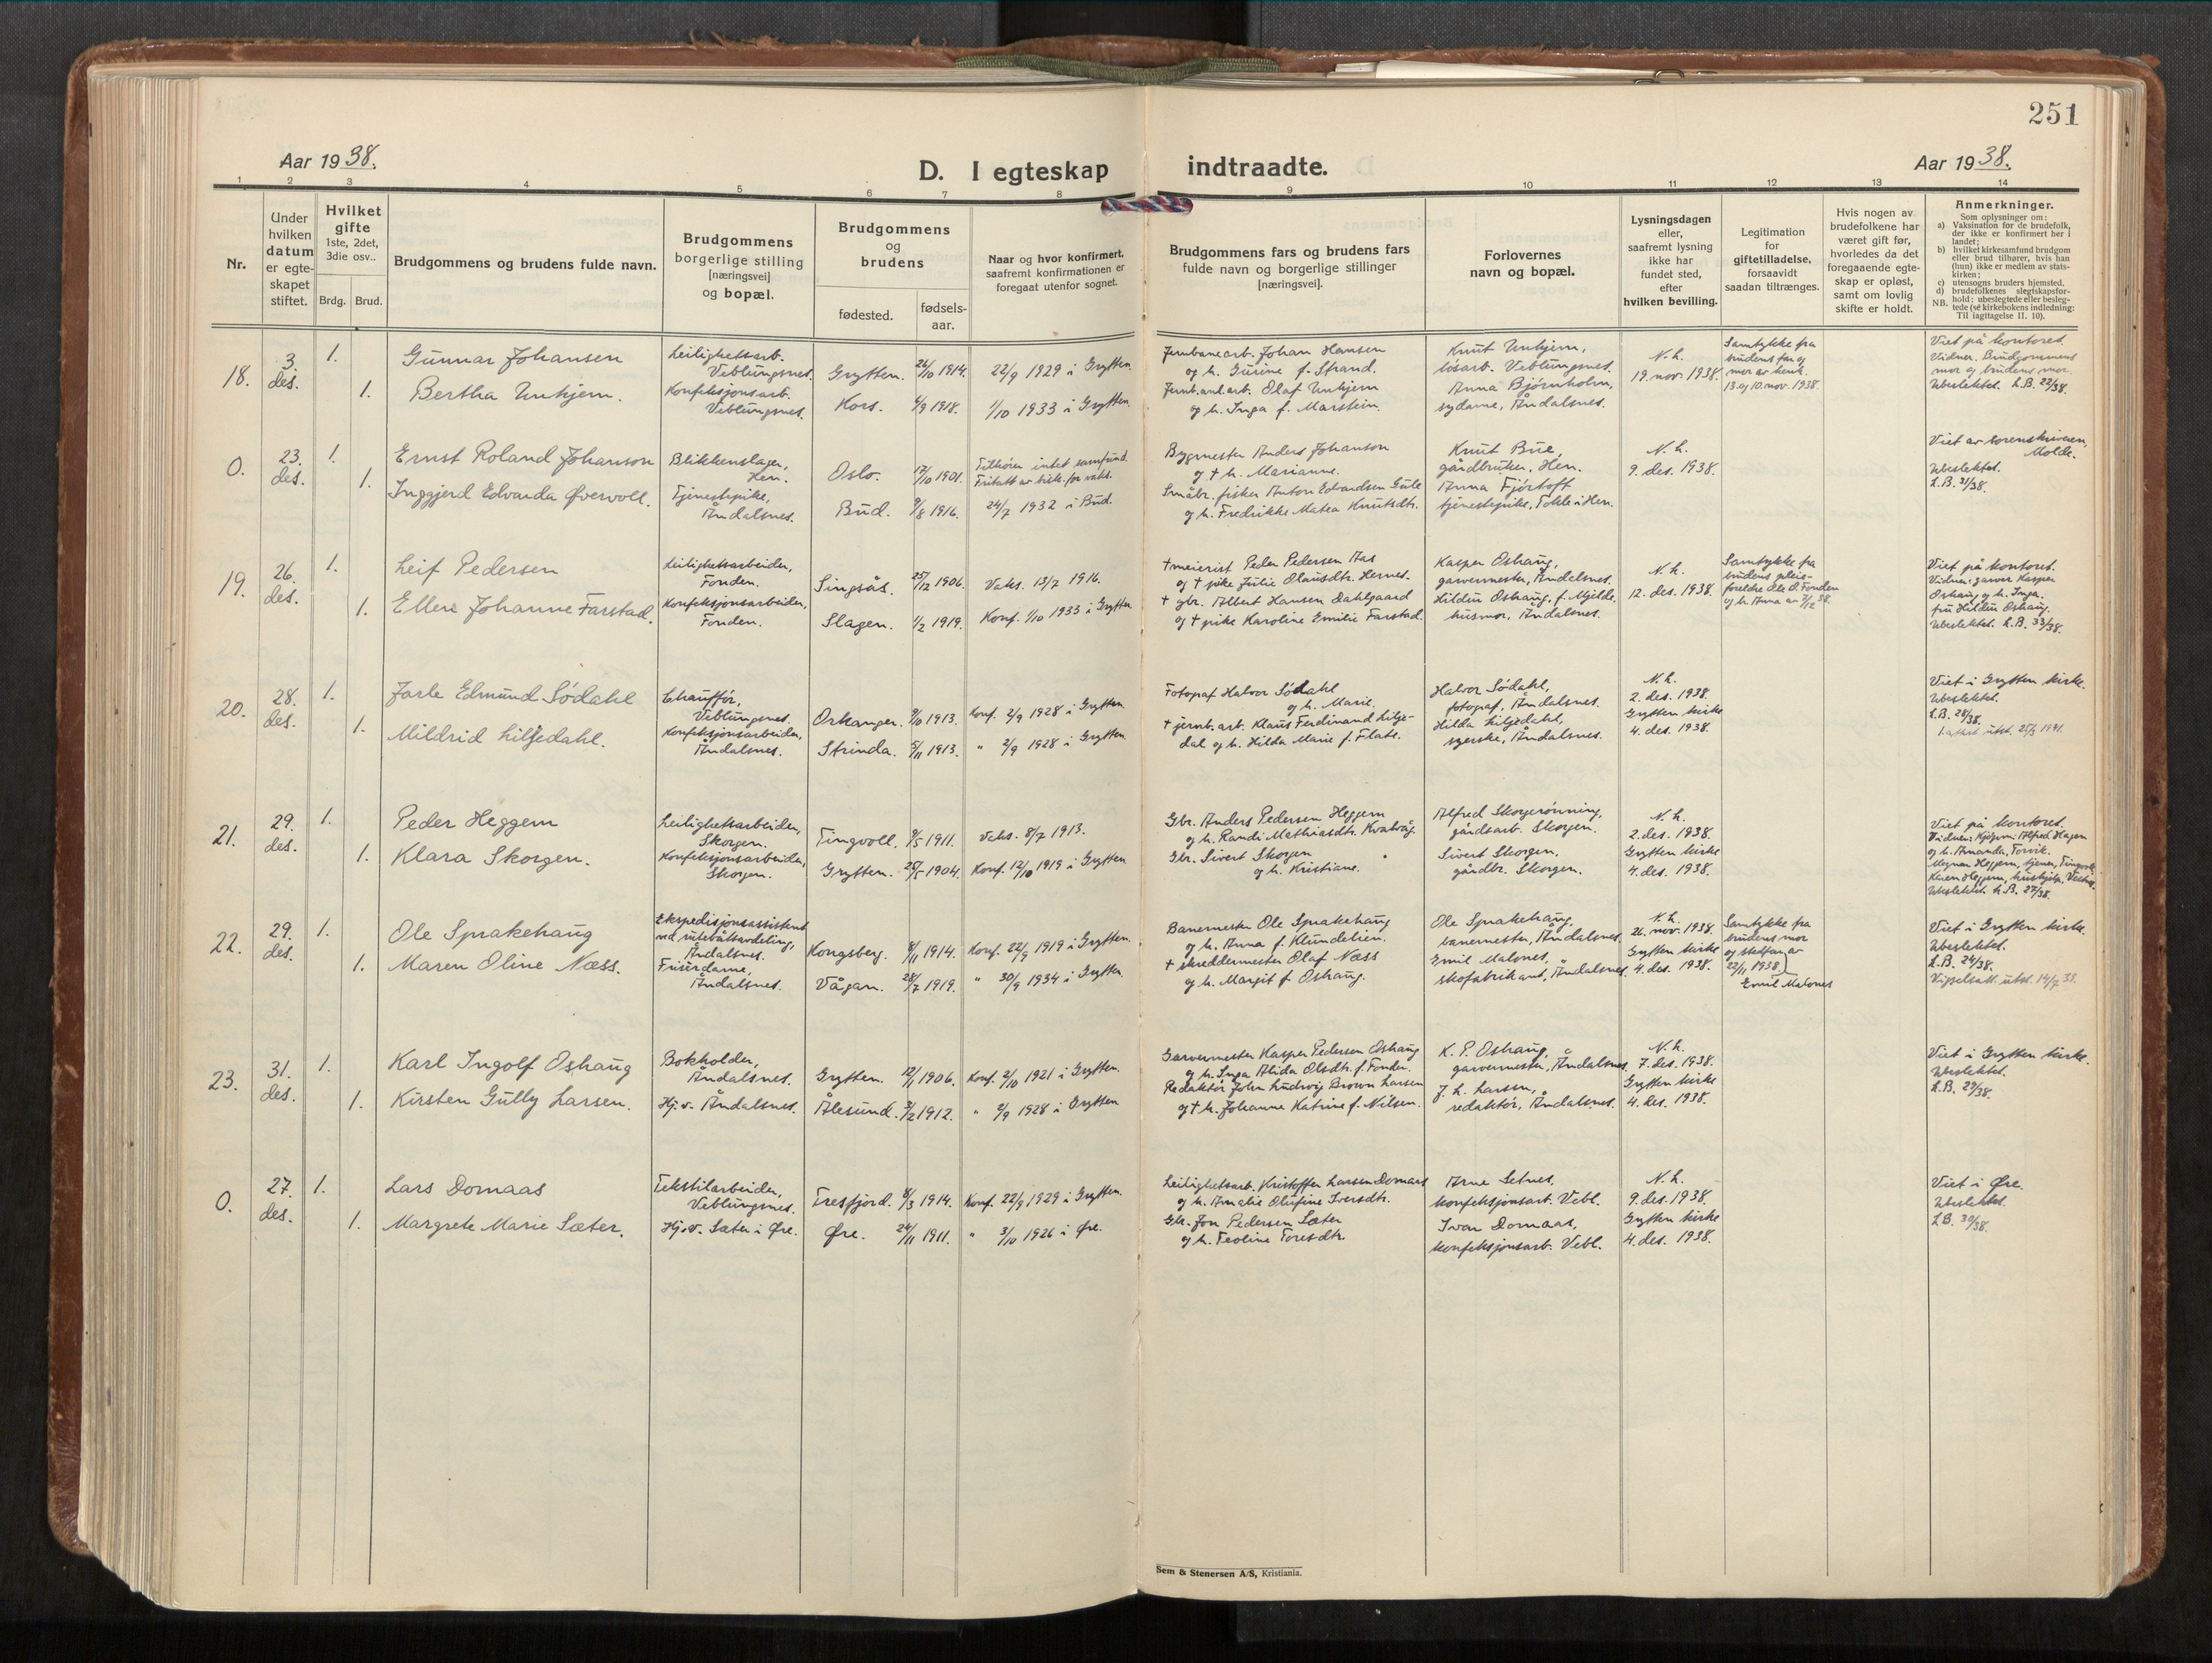 251
Aar 1938.
D. I egteskap indtraadte.
Aar 1938.
1 2 3 4 5 6 7 8 9 10 11 12 13 14
Nr.
Under
hvilken
datum
er egte-
skapet
stiftet.
Hvilket
gifte
1ste, 2det,
3die osv..
Brdg.
Brud.
Brudgommens og brudens fulde navn.
Brudgommens
borgerlige stilling
[næringsvei]
og bopæl.
Brudgommens
og
brudens
fødested.
fødsels-
aar.
Naar og hvor konfirmert,
saafremt konfirmationen er
foregaat utenfor sognet.
Brudgommens fars og brudens fars
fulde navn og borgerlige stillinger
[næringsvei].
Forlovernes
navn og bopæl.
Lysningsdagen
eller,
saafremt lysning
ikke har
fundet sted,
efter
hvilken bevilling.
Legitimation
for
giftetilladelse,
forsaavidt
saadan tiltrænges.
Hvis nogen av
brudefolkene har
været gift før,
hvorledes da det
foregaaende egte-
skap er opløst,
samt om lovlig
skifte er holdt.
Anmerkninger.
Som oplysninger om:
a) Vaksination for de brudefolk,
der ikke er konfirmert her i
landet;
b) hvilket kirkesamfund brudgom
eller brud tilhører, hvis han
(hun) ikke er medlem av stats-
kirken;
c) utensogns bruders hjemsted.
d) brudefolkenes slegtskapsfor-
hold: ubeslegtede eller besleg-
NB. tede (se kirkebokens indledning:
Til iagttagelse II. 10).
18.
3.
des.
1.
1.
Gunnar Johansen
Bertha Unhjem.
Leilighetsarb.
Veblungsnes.
Konfeksjonsarb.
Veblungsnes.
Grytten. 26/10 1914.
Kors. 4/9 1918.
22/9 1929 i Grytten.
1/10 1933 i Grytten.
Jernbanearb. Johan Hansen
og h. Gurine f. Strand.
Jernb.anl.arb. Olaf Unhjem
og h. Inga f. Marstein.
Knut Unhjem,
løsarb. Veblungsnes.
Anna Bjørnholm,
sydame, Åndalsnes.
N. h.
19. nov. 1938.
Samtykke fra
brudens far og
mor av henh.
13. og 10. nov. 1938.
Viet på kontoret.
Vidner: Brudgommens
mor og brudens mor.
Ubeslektet. L.B. 22/38.
0.
23.
des.
1.
1.
Ernst Roland Johanson
Inggjerd Edvarda Øvervoll.
Blikkenslager,
Hen.
Tjenestepike,
Åndalsnes.
Oslo. 17/10 1901.
Bud. 9/8 1916.
Tilhører intet samfund.
24/7 1932 i Bud.
Bygmester Anders Johanson
og † h. Marianne.
Småbr. fisker Anton Edvardsen Gule
og h. Fredrikke Matea Knutsdtr.
Knut Bue,
gårdbruker, Hen.
Anna Fjørtoft
tjenestepike, Tokle i Hen.
N. h.
9. des. 1938.
Viet av sorenskriveren,
Molde.
Ubeslektet.
L.B. 31/38.
19.
26.
des.
1.
1.
Leif Pedersen
Ellen Johanne Farstad.
Leilighetsarbeider,
Fonden.
Konfeksjonsarbeider,
Fonden.
Singsås. 25/12 1906.
Slagen. 1/2 1919.
Vaks. 13/7 1916.
Konf. 1/10 1933 i Grytten.
† meierist Peder Pedersen Aas
og † pike Julie Olausdtr. Hernes.
† gbr. Albert Hansen Dahlgaard
og † pike Karoline Emilie Farstad.
Kasper Oshaug,
garvermester, Åndalsnes.
Hildur Oshaug, f. Mjelde.
husmor, Åndalsnes.
N. h.
12. des. 1938.
Samtykke fra
brudens pleie-
foreldre Ole O. Fonden
og h. Anna av 7/12 38.
Viet på kontoret.
Vidner: garver Kasper
Oshaug og h. Inga.
fru Hildur Oshaug.
Ubeslektet. L.B. 33/38.
20.
28.
des.
1.
1.
Jarle Edmund Sødahl
Mildrid Liljedahl.
Chauffør,
Veblungsnes.
Konfeksjonsarbeider,
Åndalsnes.
Orkanger. 9/10 1913.
Strinda. 5/11 1913.
Konf. 2/9 1928 i Grytten.
" 2/9 1928 i Grytten.
Fotograf Halvor Sødahl
og h. Marie.
† jernb.arb. Klaus Ferdinand Lilje-
dal og h. Hilda Marie f. Flate.
Halvor Sødahl,
fotograf, Åndalsnes.
Hilda Liljedahl,
syerske, Åndalsnes.
N. h.
2. des. 1938.
Grytten kirke
4. des. 1938.
Viet i Grytten kirke.
Ubeslektet.
L.B. 28/38.
utst. 25/3 1941.
21.
29.
des.
1.
1.
Peder Heggem
Klara Skorgen.
Leilighetsarbeider,
Skorgen.
Konfeksjonsarbeider,
Skorgen.
Tingvoll. 9/5 1911.
Grytten. 25/5 1904.
Vaks. 8/7 1913.
Konf. 12/10 1919 i Grytten
Gbr. Anders Pedersen Heggem
og h. Randi Mathiasdtr. Kvalvåg.
Gbr. Sivert Skorgen
og h. Kristiane.
Alfred Skorgerønning,
gårdsarb. Skorgen.
Sivert Skorgen,
gårdbr. Skorgen.
N. h.
2. des. 1938.
Grytten kirke
4. des. 1938.
Viet på kontoret.
Vidner: Kjøpm. Alfred Hagen
og h. Amanda, Torvik.
Magnar Heggem, tjener, Tingvoll,
Karen Heggem, hushjelp,
Ubeslektet. L.B. 27/38.
22.
29.
des.
1.
1.
Ole Sprakehaug
Maren Oline Næss.
Ekspedisjonsassistent
ved rutebåtavdeling,
Åndalsnes.
Frisørdame,
Åndalsnes.
Kongsberg. 8/11 1914.
Vågan. 28/7 1919.
Konf. 22/9 1919 i Grytten.
" 30/9 1934 i Grytten.
Banemester Ole Sprakehaug
og h. Anna f. Klundelien.
† skreddermester Olaf Næss
og h. Margit f. Oshaug.
Ole Sprakehaug,
banemester, Åndalsnes.
Emil Malones,
skofabrikant, Åndalsnes.
N. h.
26. nov. 1938.
Grytten kirke
4. des. 1938.
Samtykke fra
brudens mor
og steffar av
22/11 1938)
Emil Malones
Viet i Grytten kirke.
Ubeslektet.
L.B. 24/38.
Vigselsatt. utst. 14/7 39.
23.
31.
des.
1.
1.
Karl Ingolf Oshaug
Kirsten Gully Larsen.
Bokholder,
Åndalsnes.
Hj.v. Åndalsnes.
Grytten. 12/11 1906.
Ålesund. 3/2 1912.
Konf. 2/10 1921 i Grytten.
" 2/9 1928 i Grytten
Garvermester Kasper Pedersen Oshaug
og h. Inga Alida Olsdtr. f. Fonder.
Redaktør John Ludvig Brown Larsen
og † h. Johanne Katrine f. Nilsen.
K. P. Oshaug,
garvermester, Åndalsnes.
J. L. Larsen,
redaktør, Åndalsnes.
N. h.
7. des. 1938.
Grytten kirke
4. des. 1938.
Viet i Grytten kirke.
Ubeslektet.
L.B. 29/38.
0.
27.
des.
1.
1.
Lars Dornaas
Margrete Marie Sæter.
Tekstilarbeider,
Veblungsnes.
Hj.v. Sæter i Øre.
Tresfjord. 8/3 1914.
Øre. 24/11 1911.
Konf. 22/9 1929 i Grytten.
" 3/10 1926 i Øre.
Leilighetsarb. Kristoffer Larsen Dornaas
og h. Amalie Olufine Iversdtr.
Gbr. Jon Pedersen Sæter
og h. Teoline Toresdtr.
Arne Setnes,
konfeksjonsarb. Vebl.
Ivar Dornaas,
konfeksjonsarb. Vebl.
N. h.
9. des. 1938.
Grytten kirke
4. des. 1938.
Viet i Øre.
Ubeslektet.
L.B. 30/38.
Sem & Stenersen A/S, Kristiania.